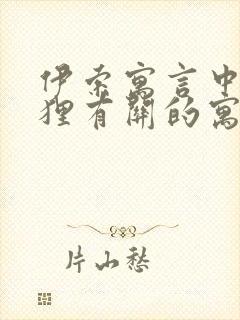 伊索寓言中
狸有關的寓
片山愁